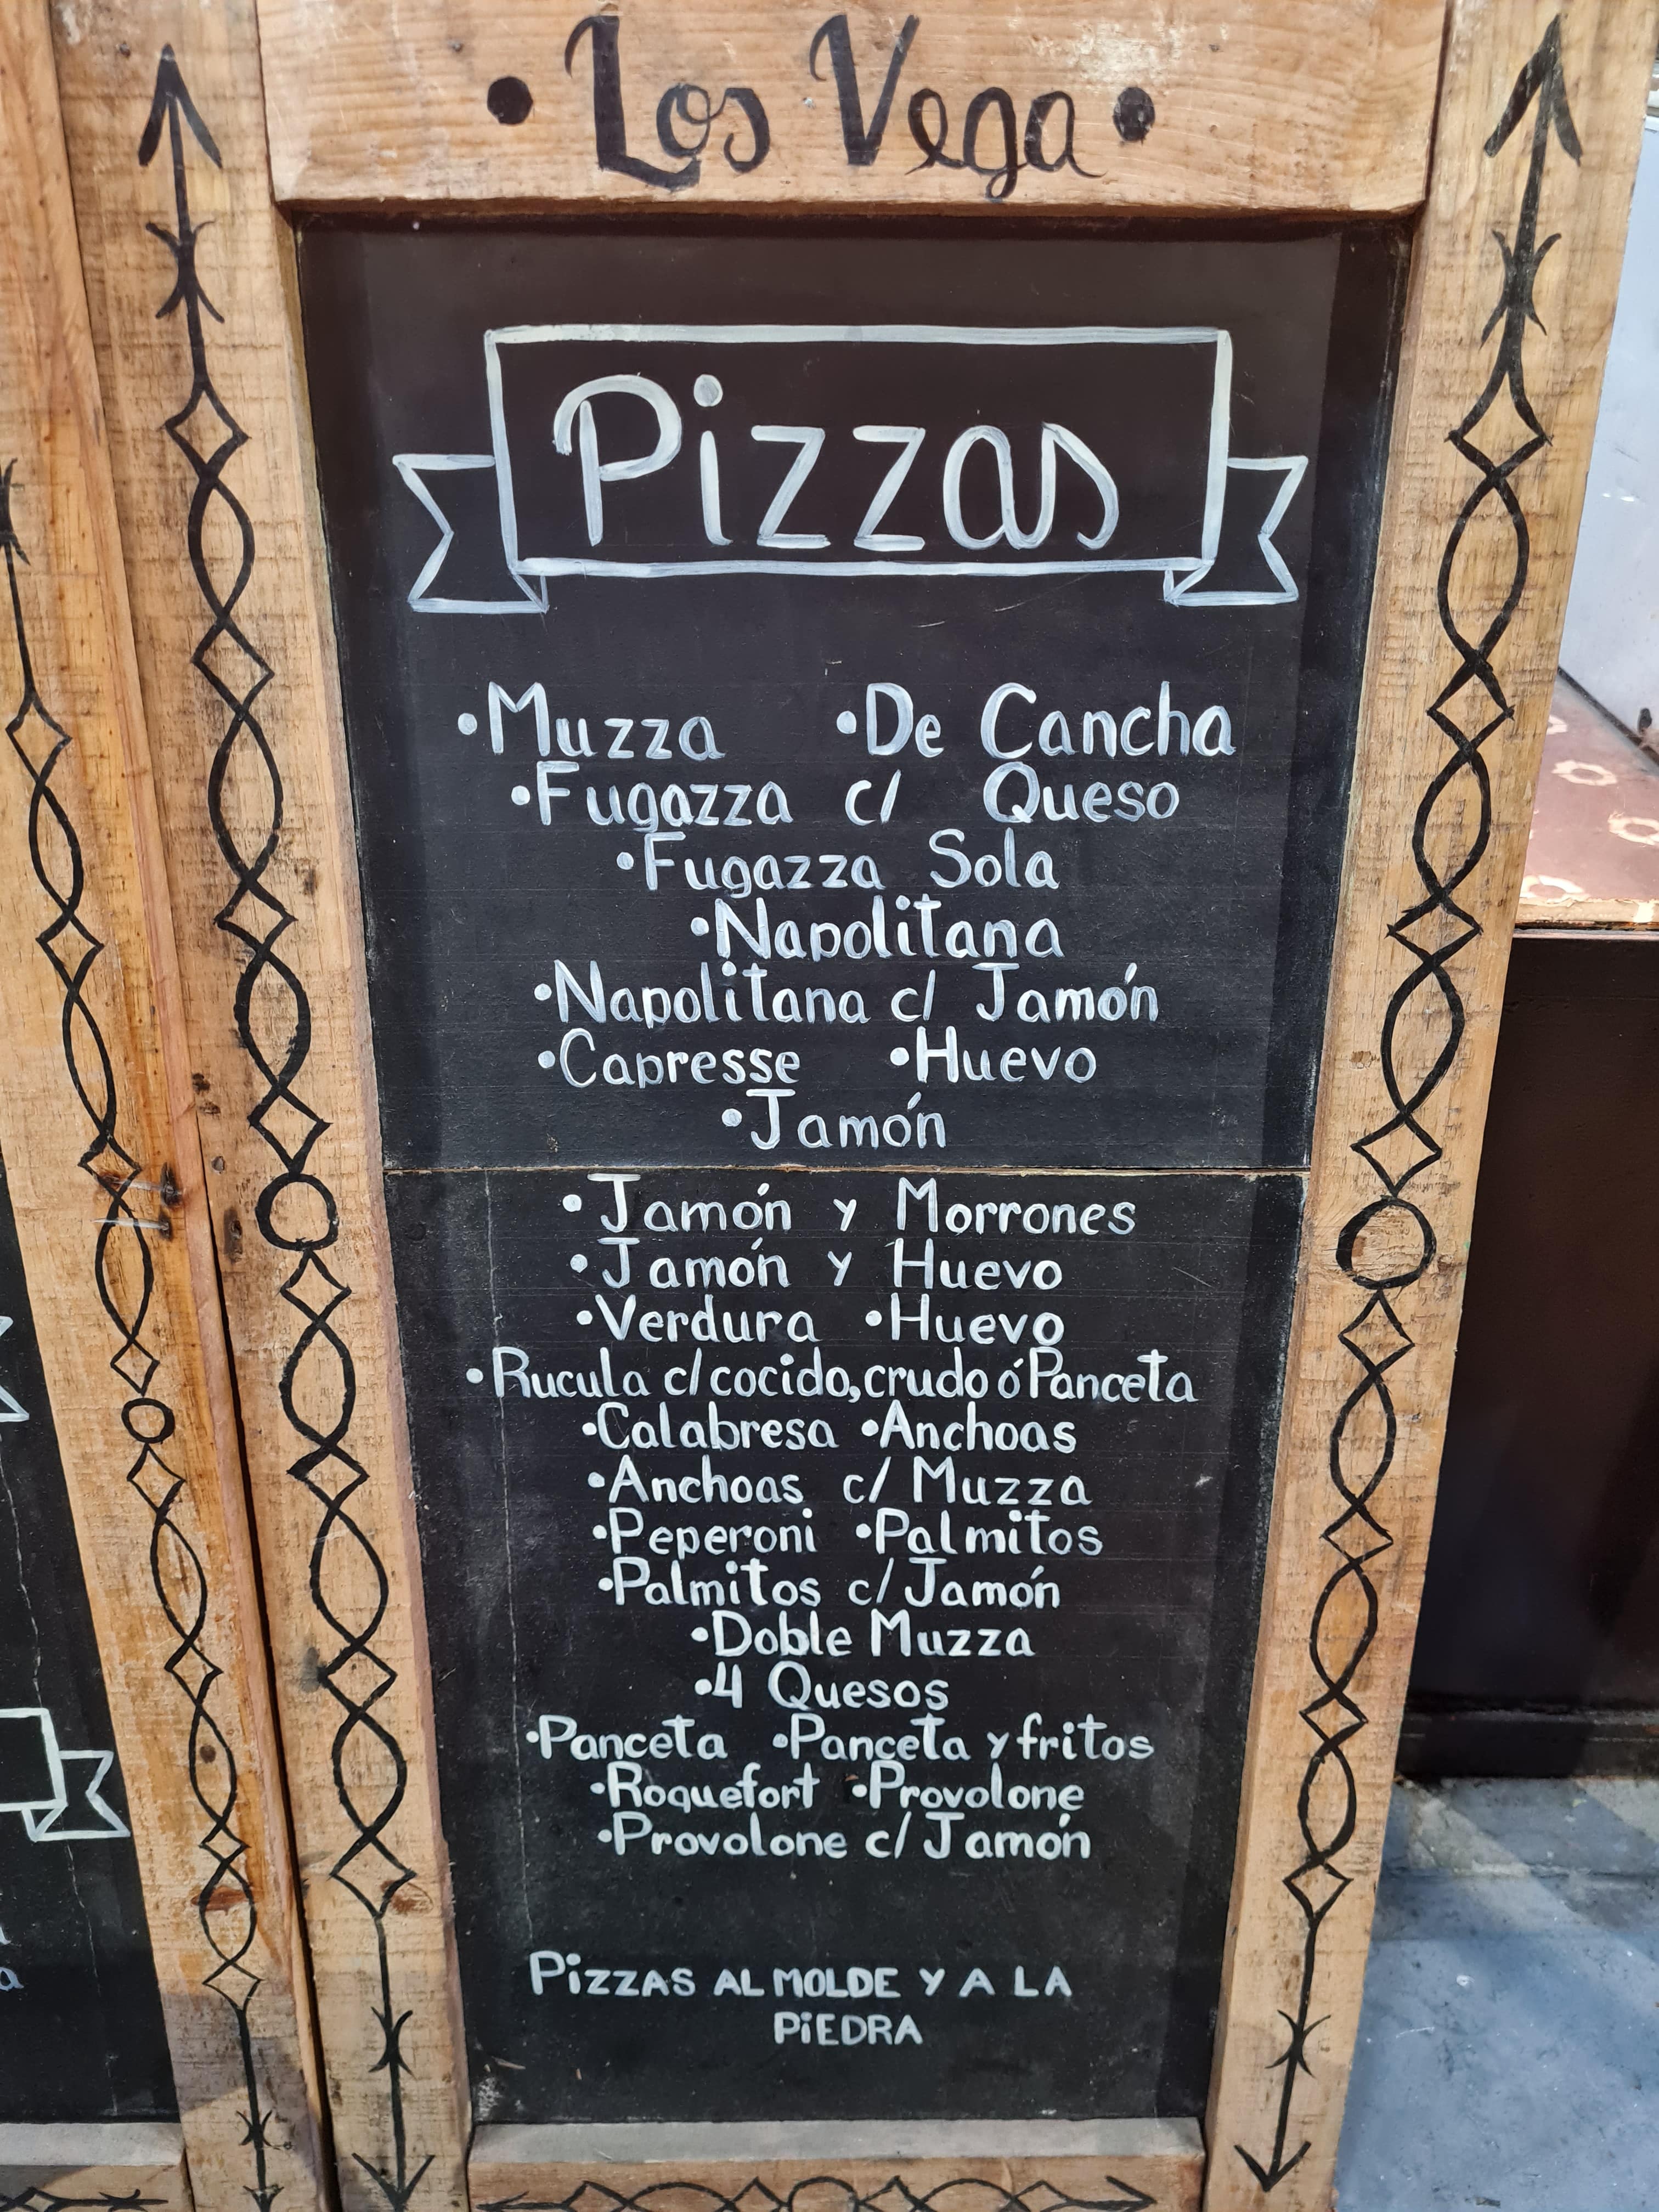 • Los Vega •
Pizzas
•Muzza •De Cancha
•Fugazza c/ Queso
•Fugazza Sola
•Napolitana
•Napolitana c/ Jamón
•Capresse •Huevo
•Jamón
•Jamón y Morrones
•Jamón y Huevo
•Verdura •Huevo
•Rucula c/cocido,crudo ó Panceta
•Calabresa •Anchoas
•Anchoas c/ Muzza
•Peperoni •Palmitos
•Palmitos c/Jamón
•Doble Muzza
•4 Quesos
•Panceta •Panceta y fritos
•Roquefort •Provolone
•Provolone c/Jamón
PiZZAS AL MOLDE Y A LA
PiEDRA